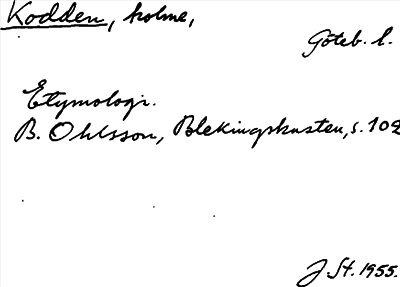 Kodden, holme,
Göteb. l.
Etymologi.
B. Ohlsson, Blekingskusten, s. 102
J. St. 1955.